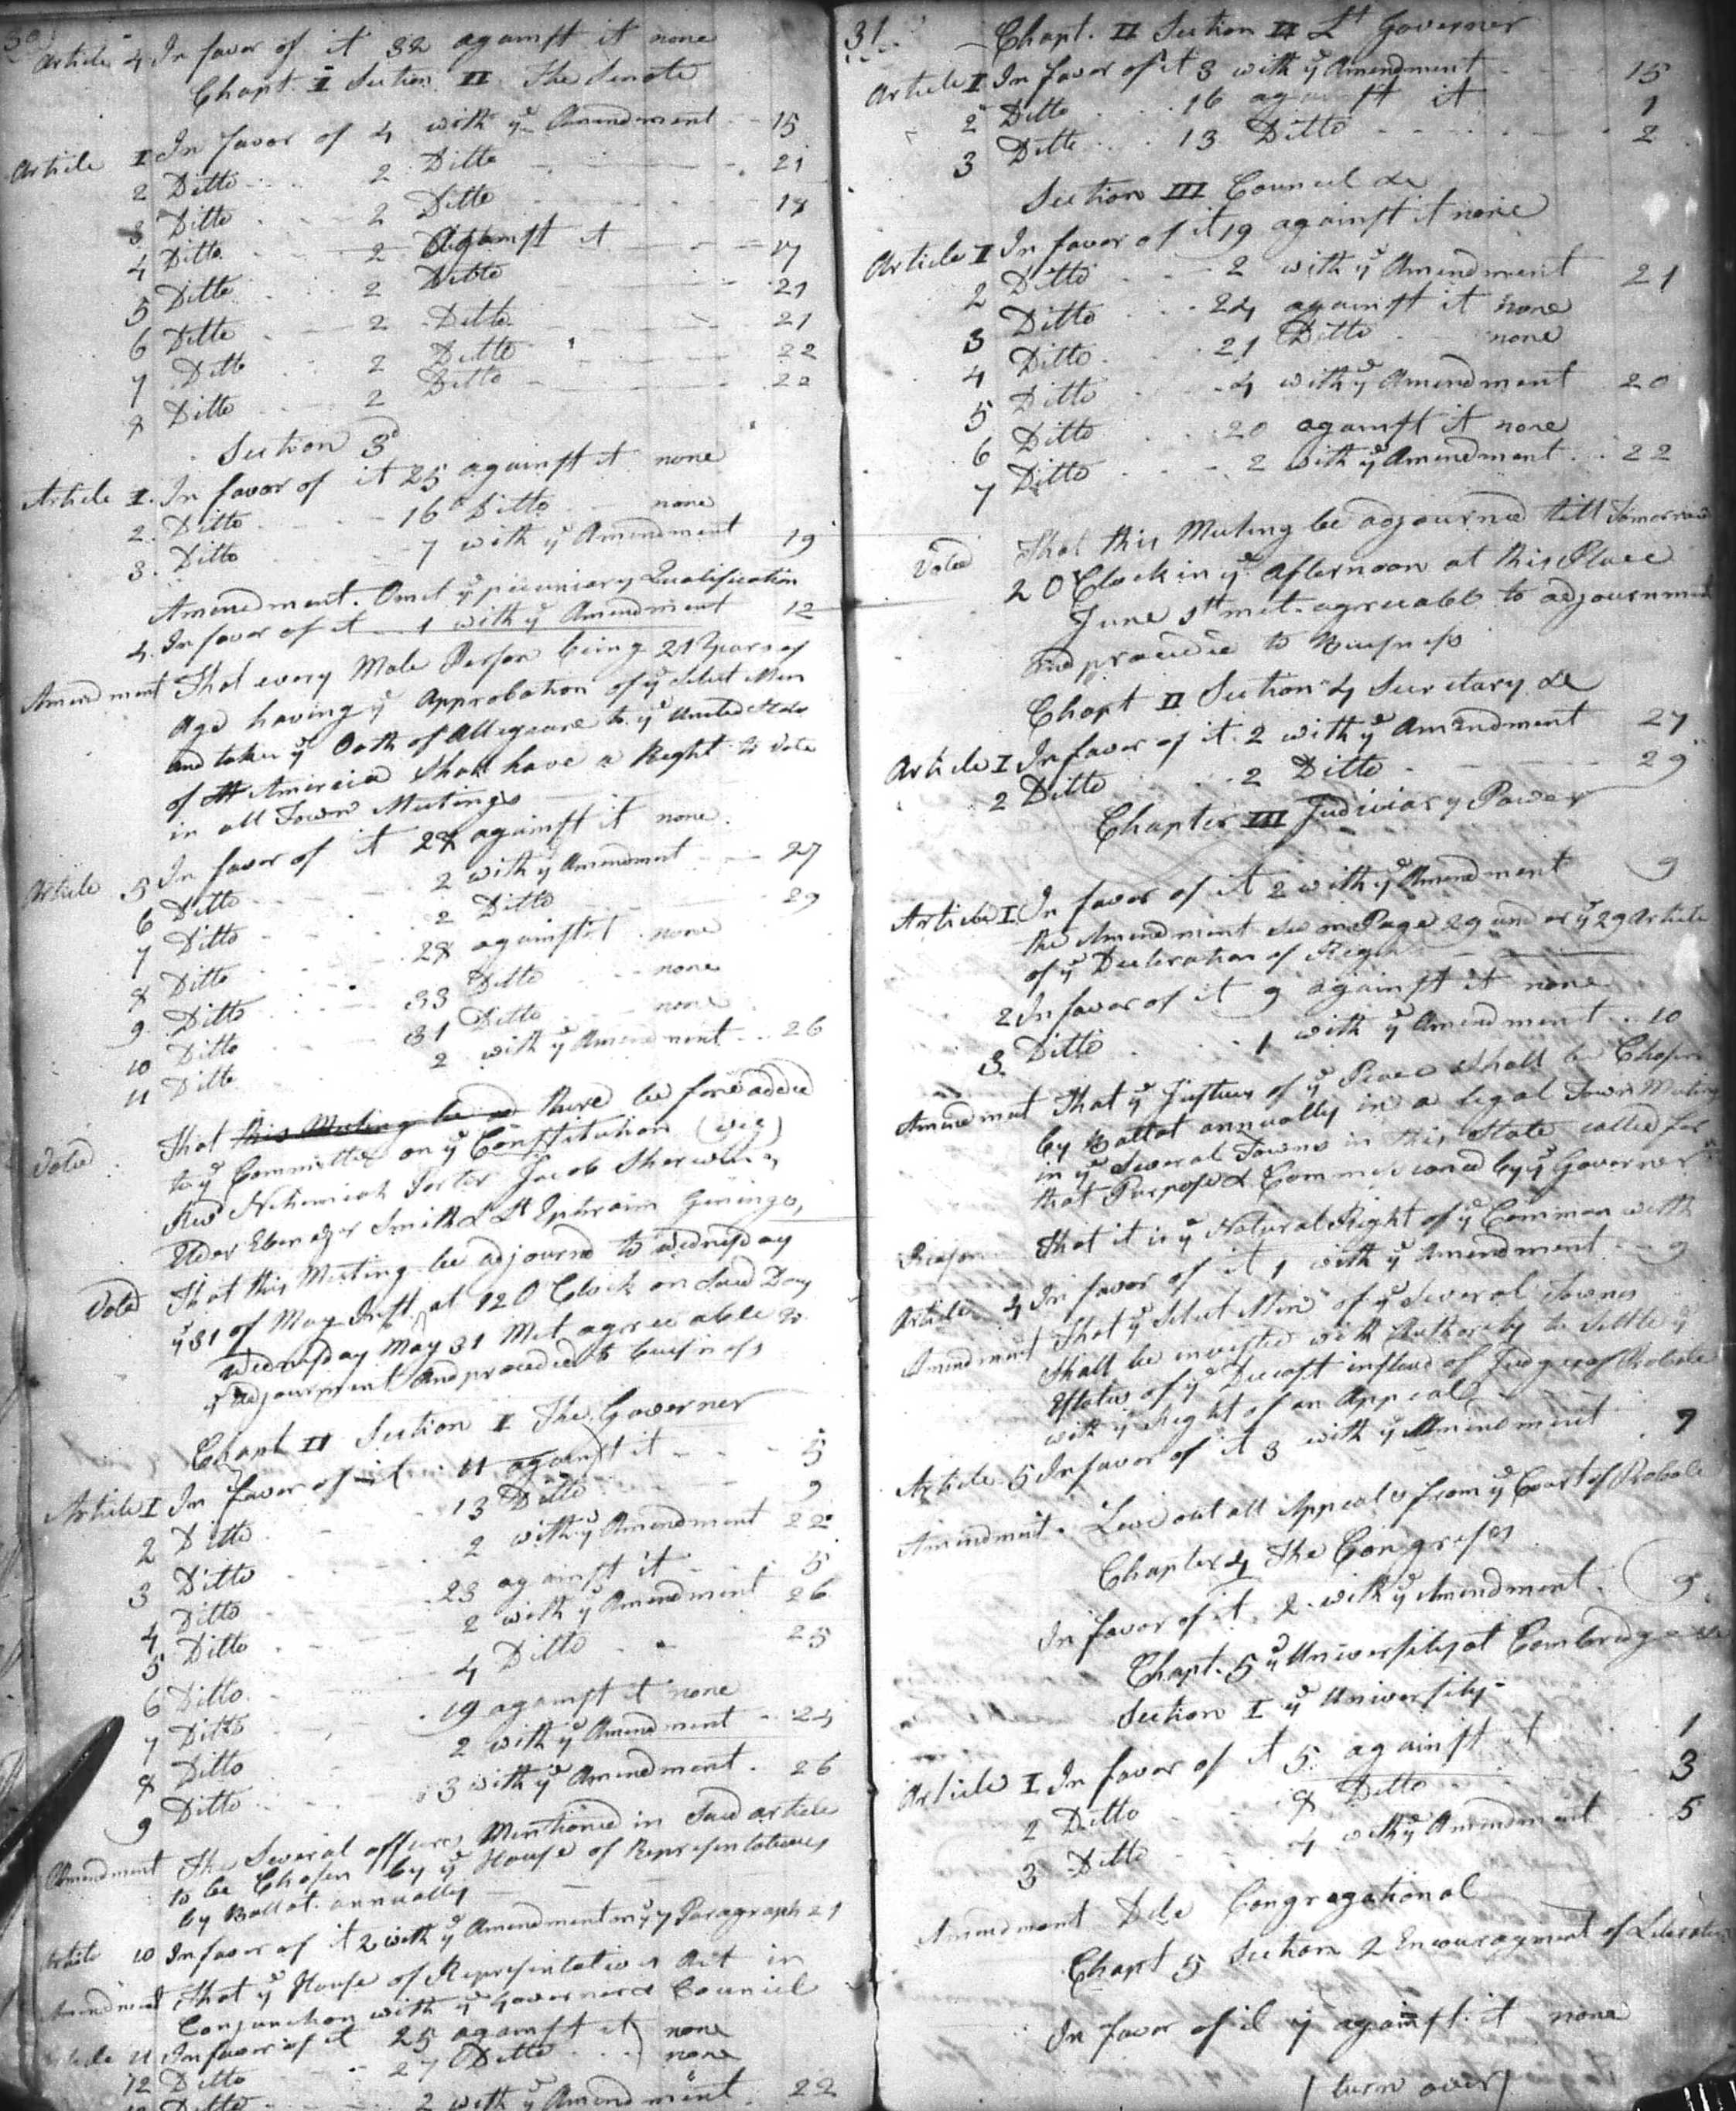 30
Article 4 In favor of it 32 against it none
Chapt. I Section II The Senate
Article I In favor of 4 with ye Amendment 15
2 Ditto 2 Ditto 21
3 Ditto 2 Ditto 18
4 Ditto 2 Against it 17
5 Ditto 2 Ditto 21
6 Ditto 2 Ditto 21
7 Ditto 2 Ditto 22
8 Ditto 2 Ditto 22
Section 3d
Article I. In favor of it 25 against it none
2. Ditto 16 Ditto none
3. Ditto 7 with ye Amendment 19
Amendment. Omit ye pecuniary Qualification
4. In favor of it 1 with ye Amendment 12
Amendment That every Male Person being 21 Years of
Age having ye Approbation of ye Select Men
and taken ye Oath of Allegeance to ye United States
of America Shall have a Right to Vote
in all Town Meetings
Article 5 In favor of it 28 against it none
6 Ditto 2 with ye Amendment 27
7 Ditto 2 Ditto 29
8 Ditto 28 against it none
9 Ditto 33 Ditto none
10 Ditto 31 Ditto none
11 Ditto 2 with ye Amendment 26
Voted That this Meeting be a there be fore added
to ye Committee on ye Constitution (viz)
Revd Nehemiah Porter Jacob Sherwin
Elder Ebenezer Smith & Lt Ephraim Jenings,
Voted That this Meeting be adjournd to Wednesday
ye 31 of May Inst. at 12 O Clock on Said Day
Wednesday May 31 Met agreeable to
Adjournment and proceeded to business
Chapt II Section I The Governer
Article I In favor of it 11 against it 5
2 Ditto 13 Ditto 9
3 Ditto 2 with ye Amendment 22
4 Ditto 23 against it 5
5 Ditto 2 with ye Amendment 26
6 Ditto 4 Ditto 25
7 Ditto 19 against it none
8 Ditto 2 with ye Amendment 24
9 Ditto 3 with ye Amendment 26
Amendment The Several officers Mentioned in Said article
to be Chosen by ye House of Representatives
by Ballot annually
Article 10 In favor of it 2 with ye Amendment on ye 7 Paragraph 21
Amendment That ye House of Representatives Act in
Conjunction with ye Governer & Council
Article 11 In favor of it 25 against it none
12 Ditto 27 Ditto none
13 Ditto 2 with ye Amendment 22
31
Chapt. II Section II Lt Governer
Article I In favor of it 3 with ye Amendment 15
2 Ditto 16 against it 1
3 Ditto 13 Ditto 2
Section III Council &c
Article I In favor of it 19 against it none
2 Ditto 2 with ye Amendment 21
3 Ditto 24 against it none
4 Ditto 21 Ditto none
5 Ditto 4 with ye Amendment 20
6 Ditto 20 against it none
7 Ditto 2 with ye Amendment 22
Voted That this Meeting be adjourned till Tomorrow
2 O Clock in ye afternoon at this Place
June 1st met agreeable to adjournment
and proceeded to Business
Chapt II Section 4 Secretary &c
Article I In favor of it 2 with ye Amendment 27
2 Ditto 2 Ditto 29
Chapter III Judiciary Power
Article I In favor of it 2 with ye Amendment 9
the Amendment See on Page 29 under ye 29 Article
of ye Decleration of Right
2 In favor of it 9 against it none
3 Ditto 1 with ye Amendment 10
Amendment That ye Justices of ye Peace Shall be Chosen
by Ballot annually in a legal Town Meeting
in ye Several Towns in this State called for
that Purpose & Commissioned by ye Governer
Reason That it is ye Natural Right of ye Common wealth
Article 4 In favor of it 1 with ye Amendment 9
Amendment That ye Select Men of ye Several Towns
Shall be invested with Authority to Settle ye
Estates of ye Deceast instead of Judges of Probate
with ye Right of an Appeal
Article 5 In favor of it 3 with ye Amendment 7
Amendment. Leve out all Appeals from ye Court of Probate
Chapter 4 The Congress
In favor of it 2 with ye Amendment 9
Chapt. 5 ye University at Cambridge &c
Section I ye University
Article I In favor of it 5 against it 1
2 Ditto 8 Ditto 3
3 Ditto 4 with ye Amendment 5
Amendment Dele Congregational
Chapt 5 Section 2 Encouragment of Literature
In favor of it 7 against it none
turn over